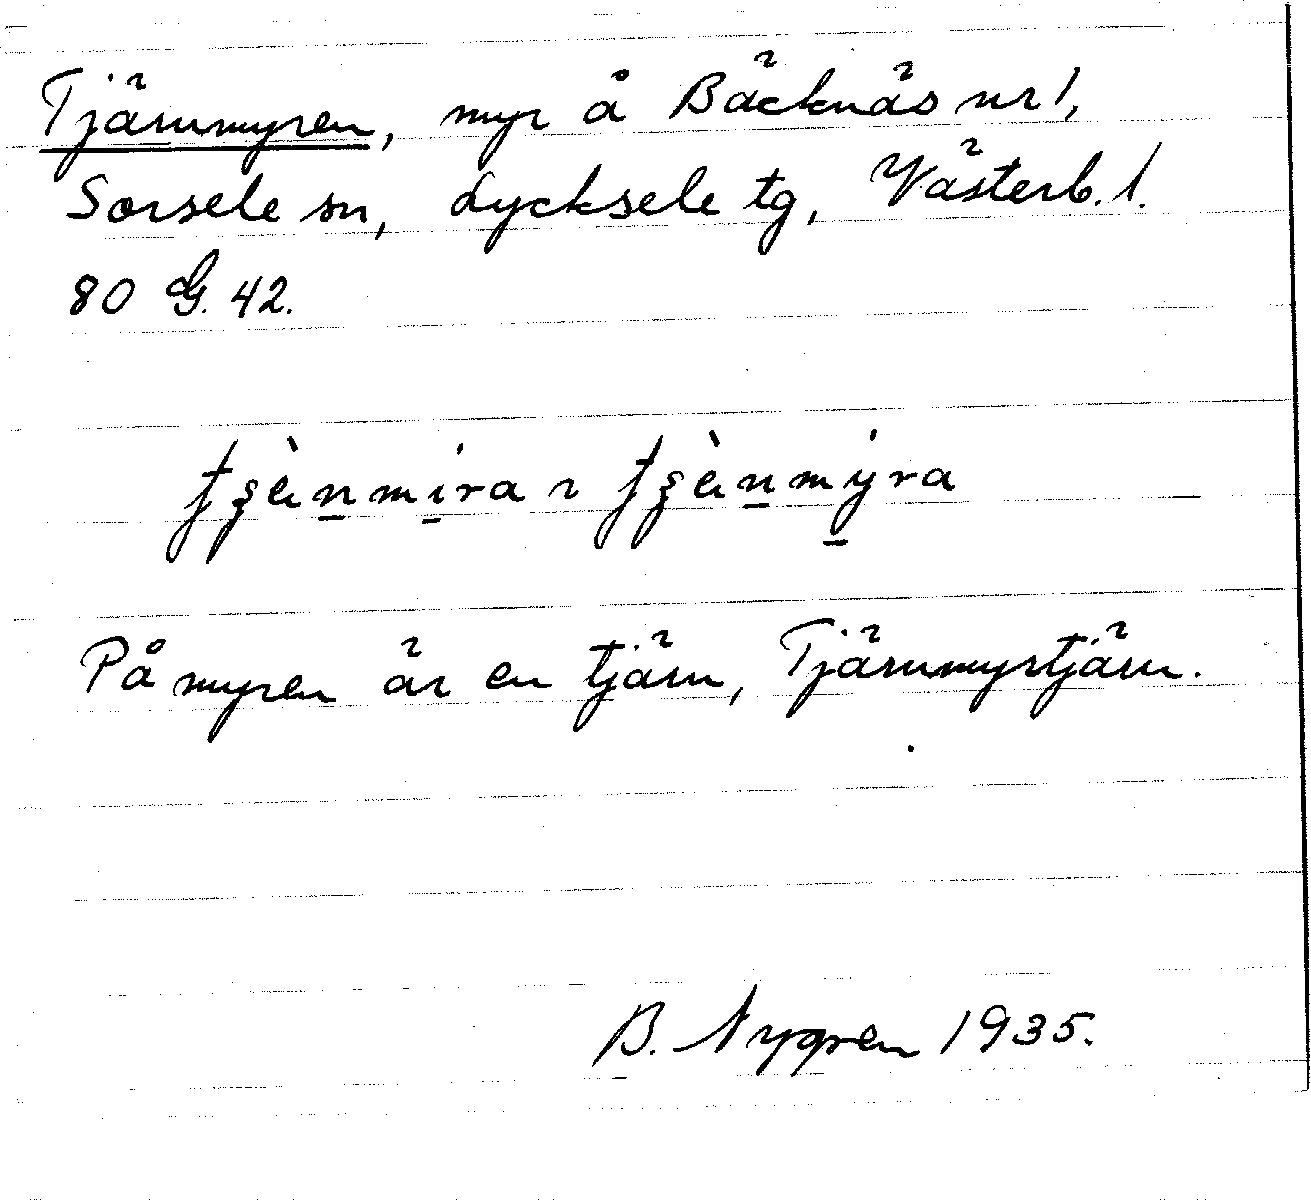 Tjärnmyren, myr å Bäcknäs nr 1,
Sorsele sn, Lycksele tg, Västerb. l.
80 G. 42.
På myren är en tjärn, Tjärnmyrtjärn.
B. Nygren 1935.